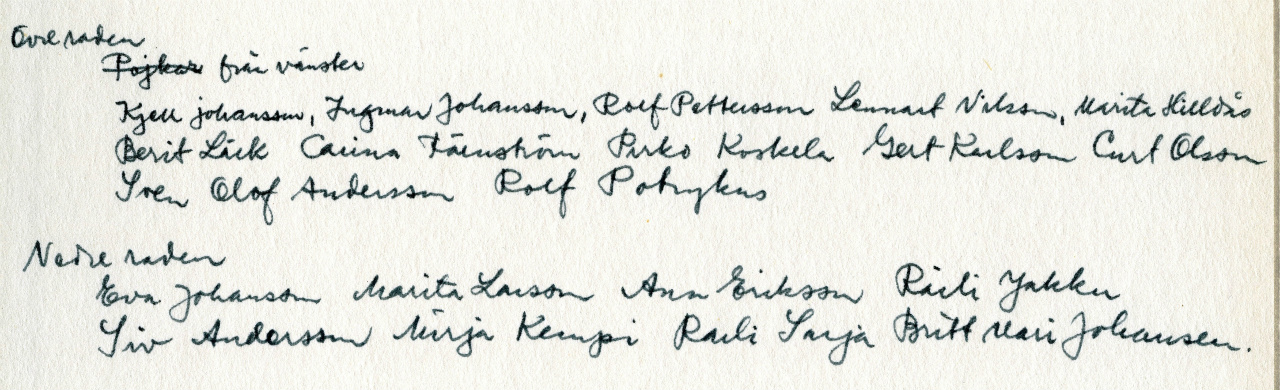 Övre raden
Pojkar från vänster
Kjell Johansson, Ingmar Johansson, Rolf Pettersson Lennart Nilsson, Marita Hilldås
Berit Läck Carina Färnström Pirko Koskela Gert Karlsson Curt Olsson
Sven Olof Andersson Rolf Potrykus
Nedre raden
Eva Johansson Marita Larsson Ann Eriksson Raili Jakku
Siv Andersson Mirja Kemppi Raili Sarja Britt Mari Johansen.